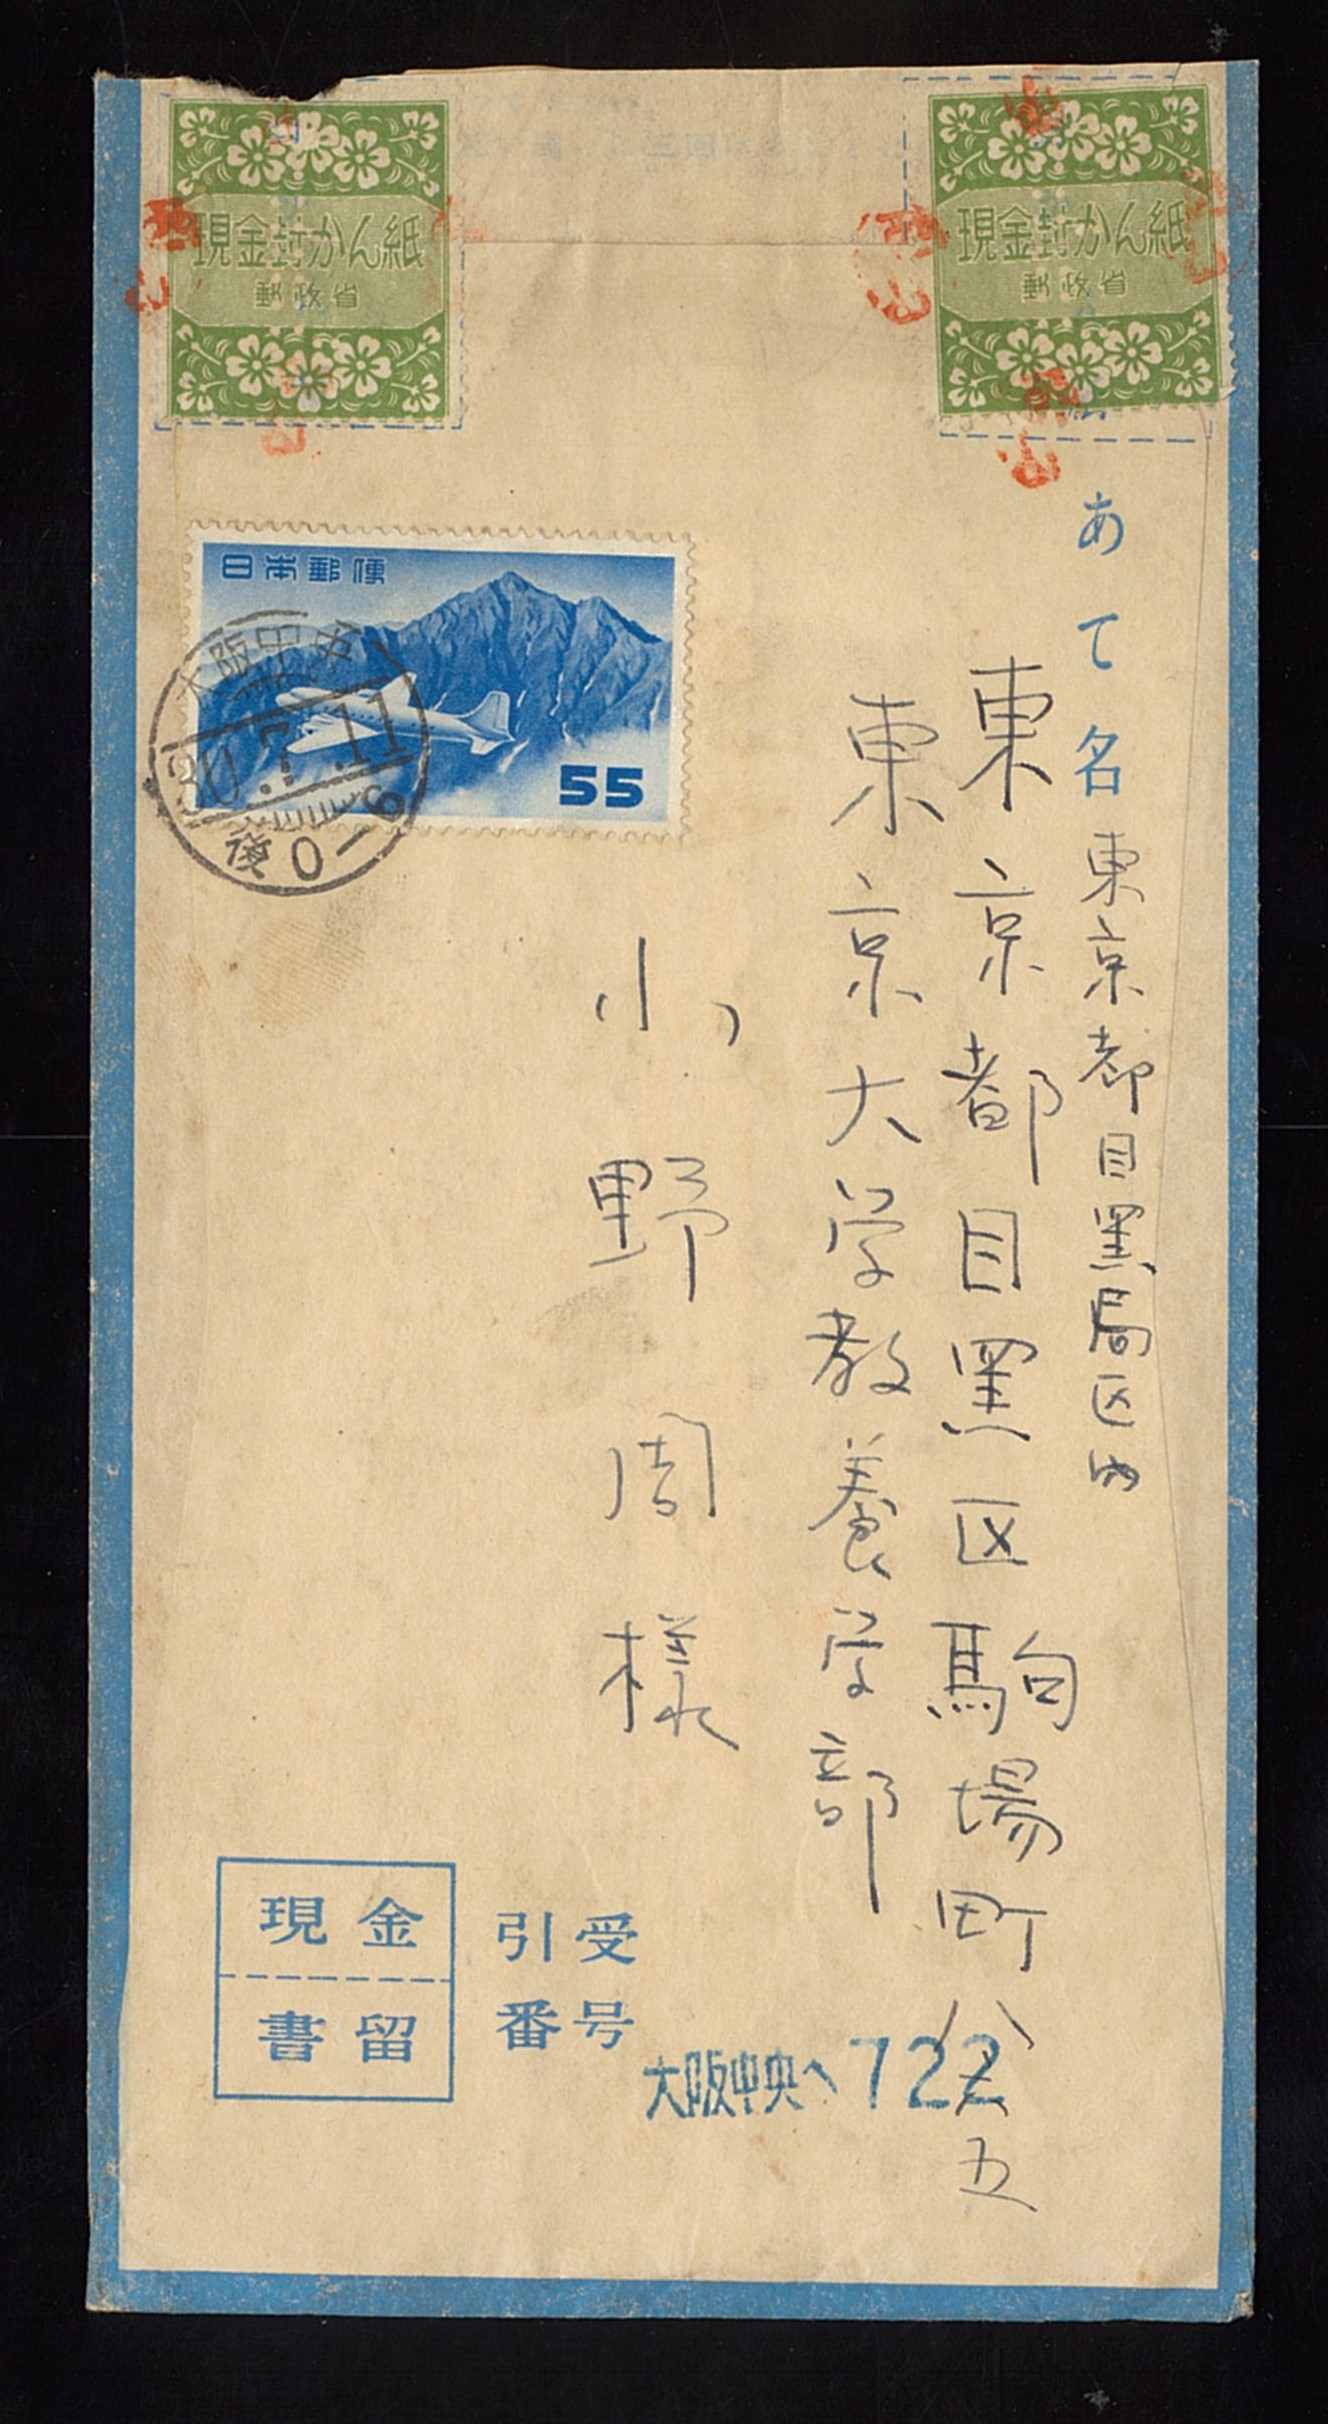 現金封かん紙
郵政省
現金封かん紙
郵政省
日本郵便
55
大阪中央
30.7.11
後0-6
あて名
東京都目黒局区内
東京都目黒区駒場町八六五
東京大学教養学部
小野周様
現金
書留
引受
番号
大阪中央へ722